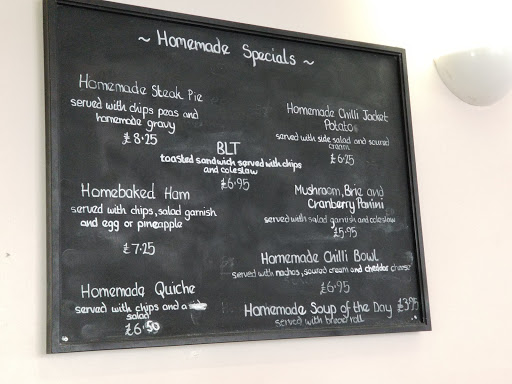 ~ Homemade Specials ~
Homemade Steak Pie
served with chips peas and
homemade gravy
£8·25
BLT
toasted sandwich served with chips
and coleslaw
£6·95
Homebaked Ham
served with chips, salad garnish
and egg or pineapple
£7·25
Homemade Quiche
served with chips and a
salad
£6·50
Homemade Chilli Jacket
Potato
served with side salad and soured
cream
£6·25
Mushroom, Brie and
Cranberry Panini
served with salad garnish and coleslaw
£5·95
Homemade Chilli Bowl
served with nachos, soured cream and cheddar cheese
£6·95
Homemade Soup of the Day £3·95
served with bread roll